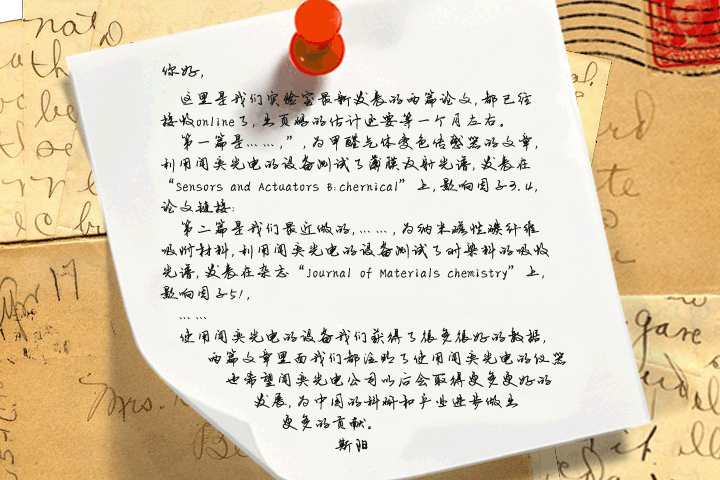 nat
你好,
这里是我们实验室最新发表的两篇论文,都已经
接收online了,出页码的估计还要等一个月左右。
第一篇是……,”,为甲醛气体变色传感器的文章,
利用闻奕光电的设备测试了薄膜反射光谱,发表在
“Sensors and Actuators B:chernical”上,影响因子3.4,
论文链接:
第二篇是我们最近做的,……,为纳米磁性碳纤维
吸附材料,利用闻奕光电的设备测试了对染料的吸收
光谱,发表在杂志“Journal of Materials chemistry”上,
影响因子5!,
……
使用闻奕光电的设备我们获得了很多很好的数据,
两篇文章里面我们都注明了使用闻奕光电的仪器
也希望闻奕光电公司以后会取得更多更好的
发展,为中国的科研和产业进步做出
更多的贡献。
斯阳
Mrs.